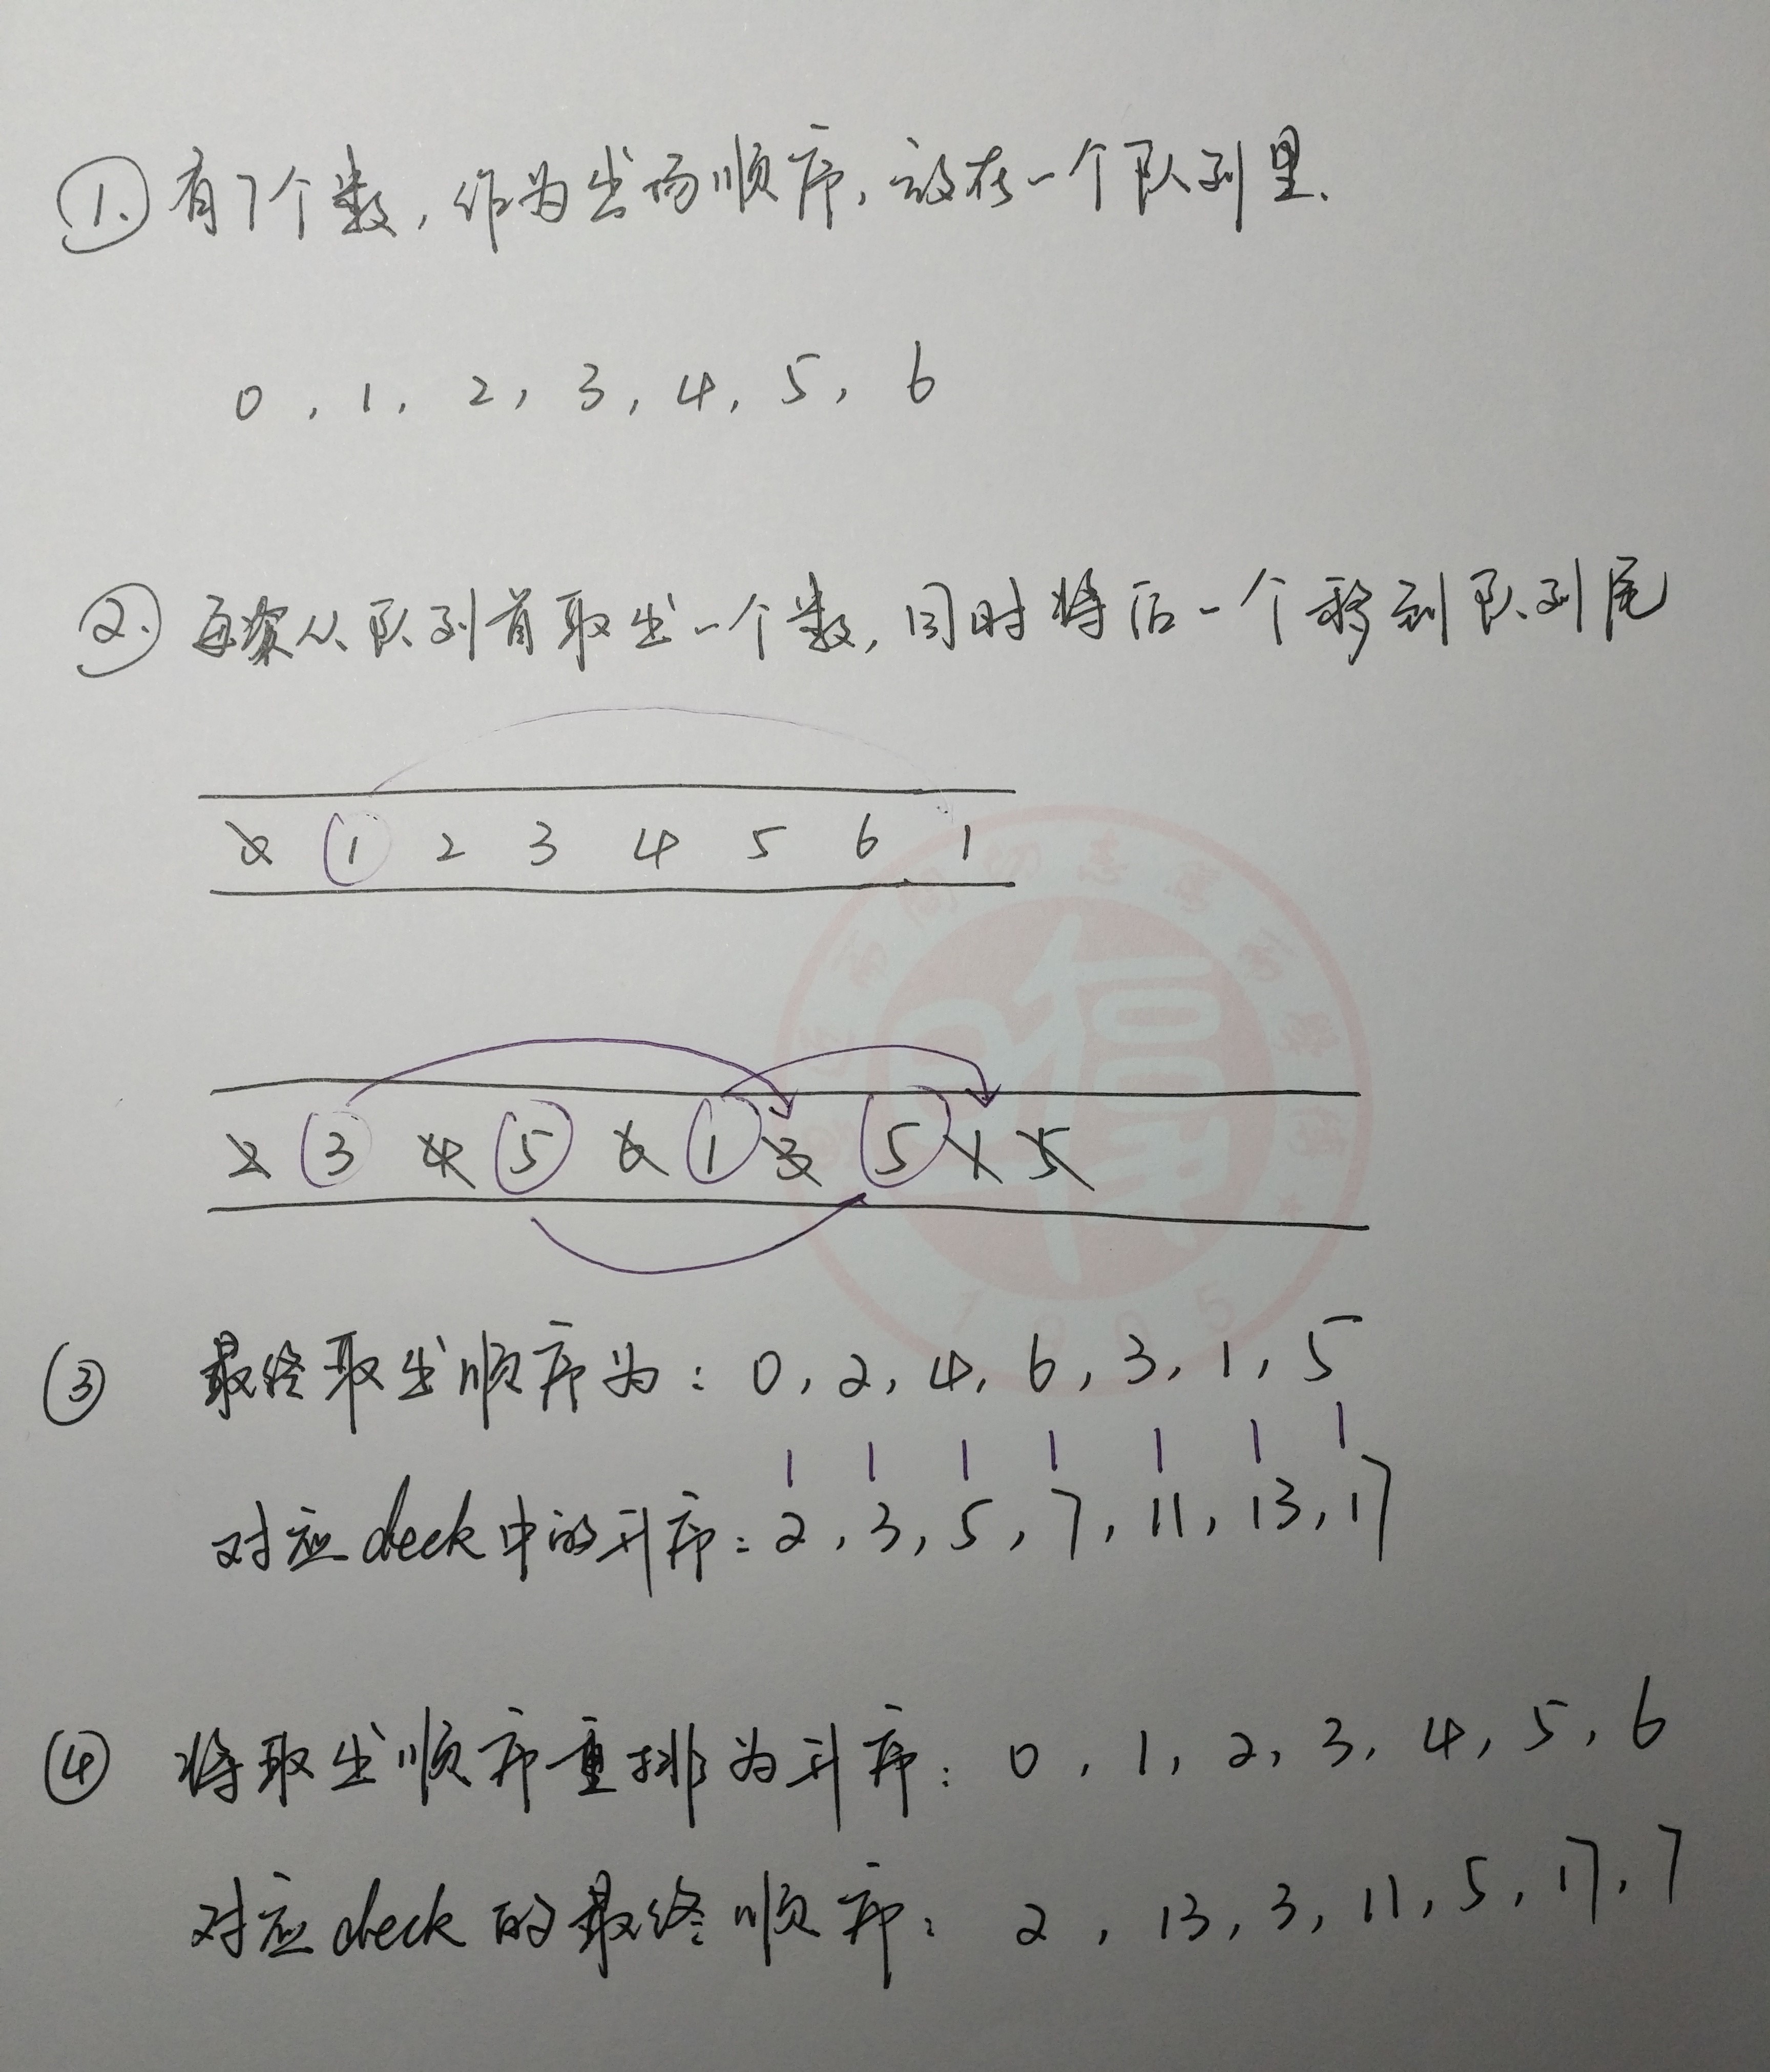 ①. 有7个数，作为出场顺序，放在一个队列里．
0，1，2，3，4，5，6
②. 每次从队列首取出一个数，同时将后一个移到队列尾
0 1 2 3 4 5 6 1
2 3 4 5 6 1 3 5 1 5
③ 最终取出顺序为：0，2，4，6，3，1，5
对应deck中的升序：2，3，5，7，11，13，17
④ 将取出顺序重排为升序：0，1，2，3，4，5，6
对应deck的最终顺序：2，13，3，11，5，17，7